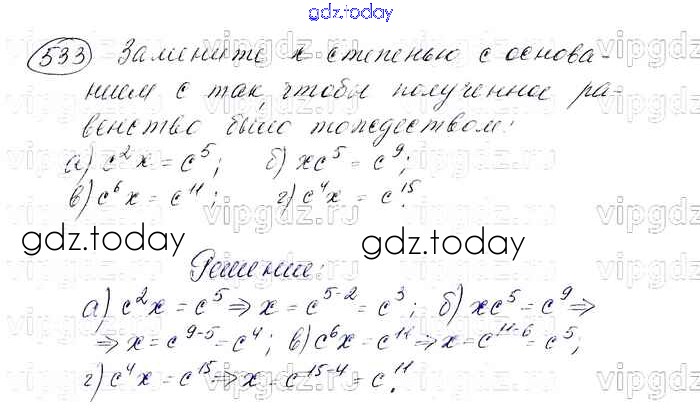 gdz.today
533 Замените x степенью с основа-
нием c так, чтобы полученное ра-
венство было тождеством:
а) c²x = c⁵; б) xc⁵ = c⁹;
в) c⁶x = c¹¹; г) c⁴x = c¹⁵.
gdz.today gdz.today
Решение:
а) c²x = c⁵ ⇒ x = c⁵⁻² = c³; б) xc⁵ = c⁹ ⇒
⇒ x = c⁹⁻⁵ = c⁴; в) c⁶x = c¹¹ ⇒ x = c¹¹⁻⁶ = c⁵;
г) c⁴x = c¹⁵ ⇒ x = c¹⁵⁻⁴ = c¹¹.